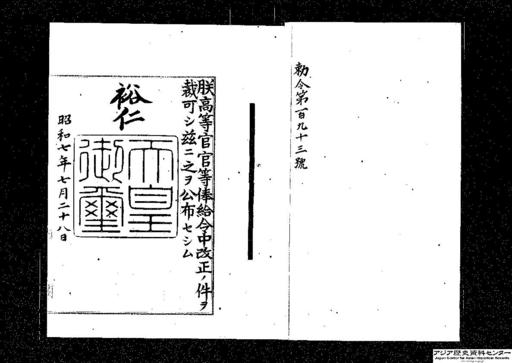 勅令第百九十三號
朕高等官官等俸給令中改正ノ件ヲ
裁可シ茲ニ之ヲ公布セシム
裕仁
天皇
御璽
昭和七年七月二十八日
アジア歴史資料センター
Japan Center for Asian Historical Records